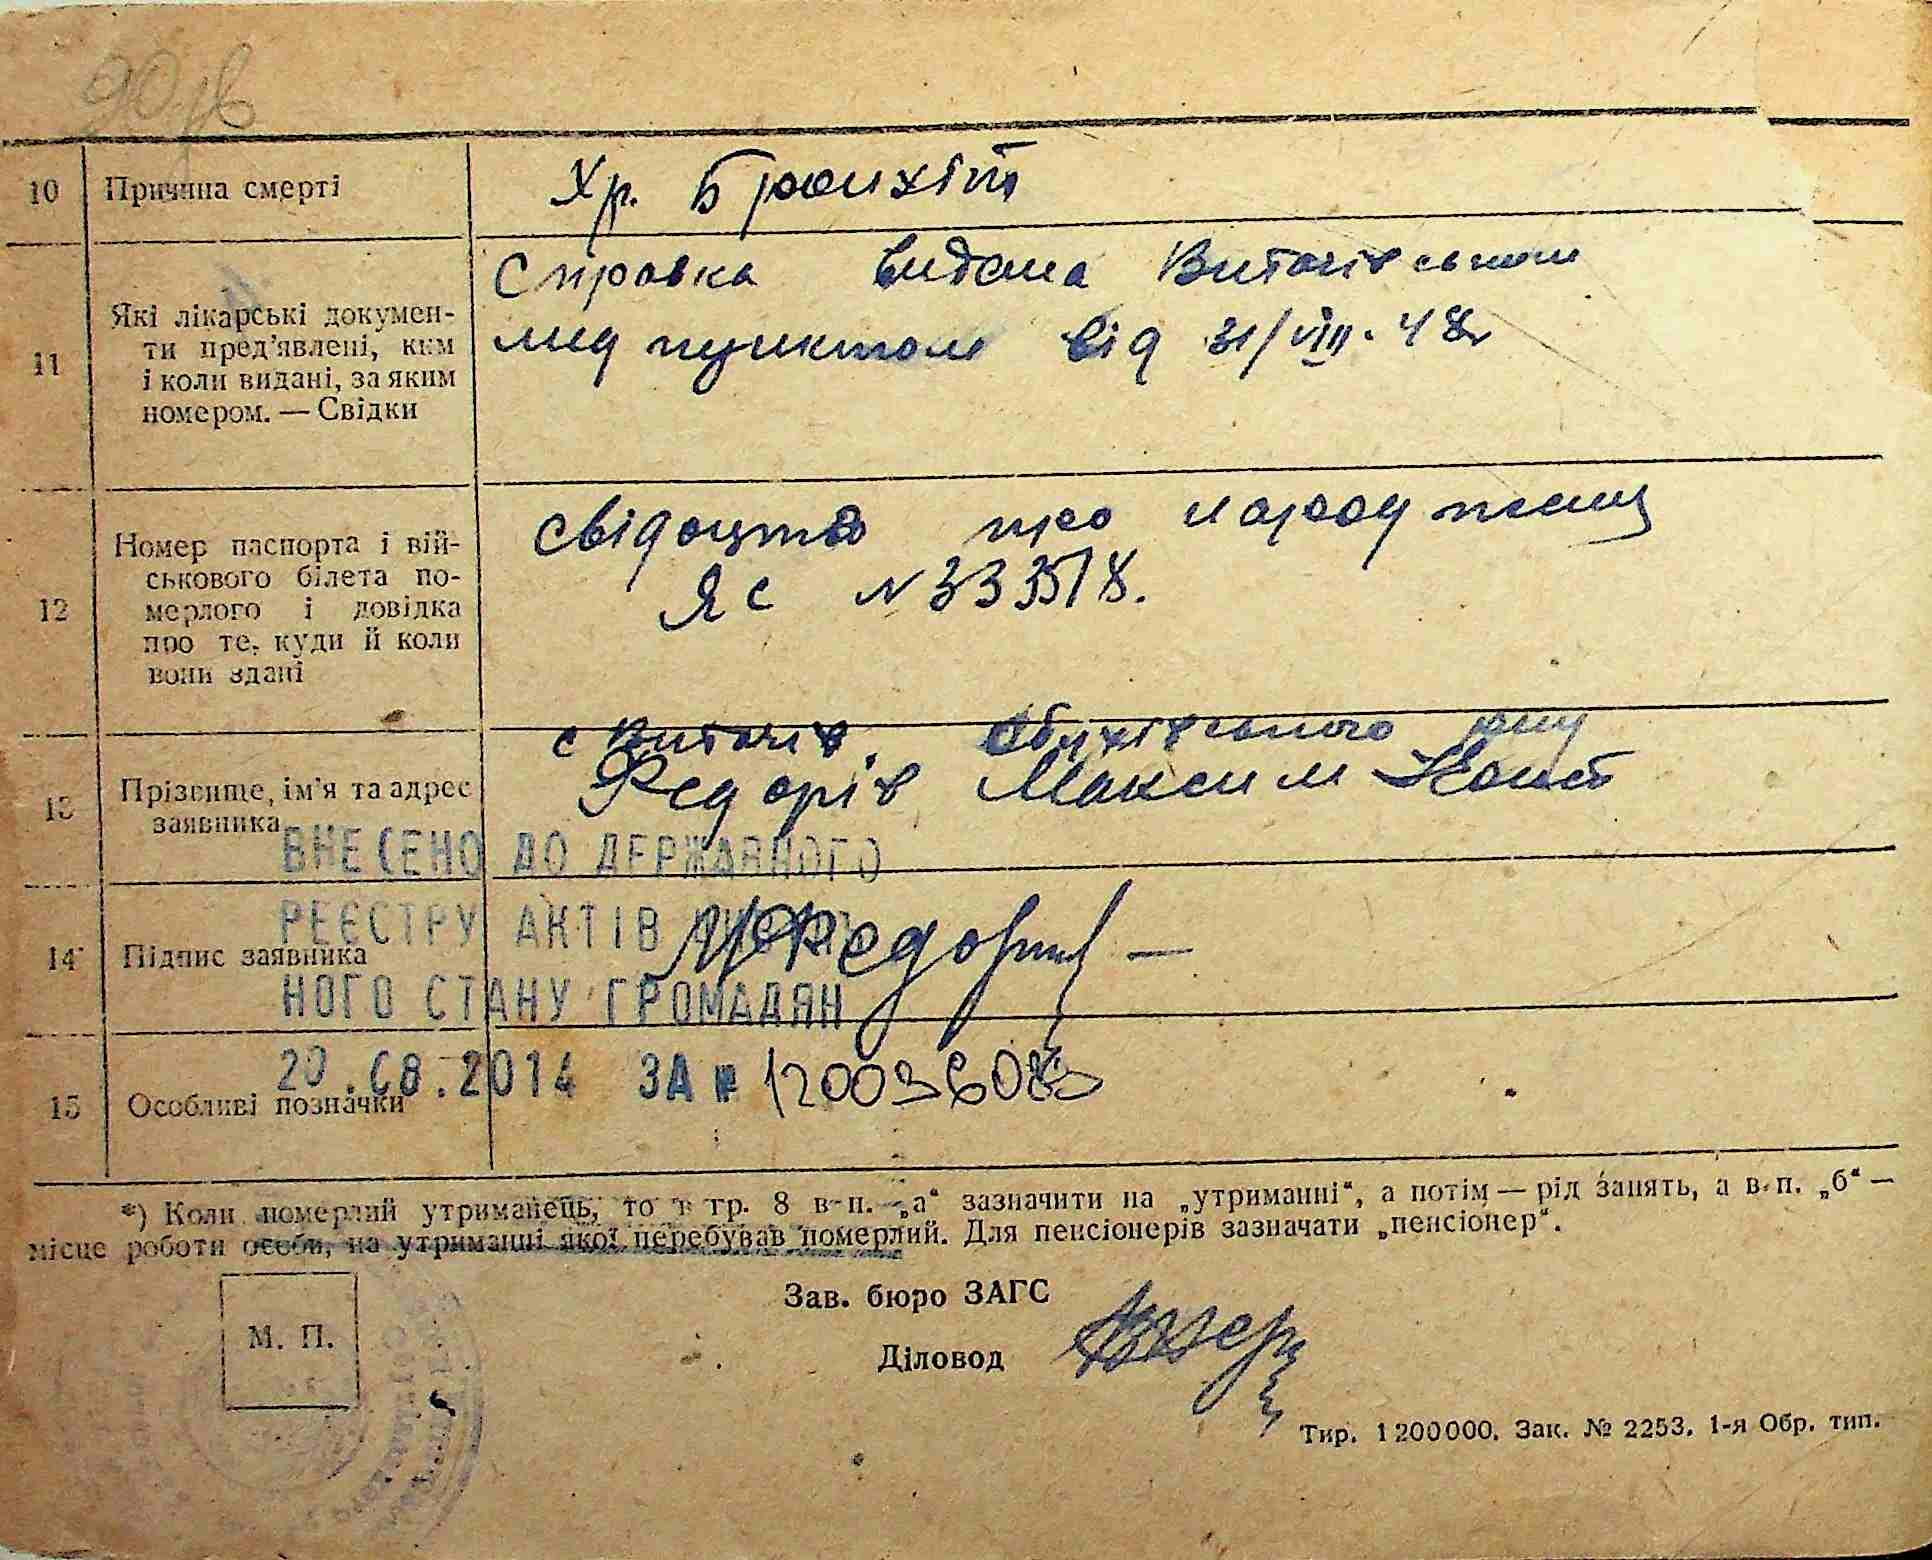 10 Причина смерті Хр. Бронхіт
Справка видана Витачівським
мед пунктом від 31/VIII. 48г
11 Які лікарські докумен-
ти пред'явлені, ким
і коли видані, за яким
номером. — Свідки
свідоцтво про народження
ЯС N 333518.
12 Номер паспорта і вій-
ськового білета по-
мерлого і довідка
про те, куди й коли
вони здані
с Витачів, Обухівського р-ну
Федорів Максим
13 Прізвище, ім'я та адрес
заявника
ВНЕСЕНО ДО ДЕРЖАВНОГО
РЕЄСТРУ АКТІВ
14 Підпис заявника
НОГО СТАНУ ГРОМАДЯН
20.08.2014 ЗА №
15 Особливі позначки
*) Коли померлий утриманець, то в гр. 8 в п. „а“ зазначити на „утриманні“, а потім — рід занять, а в п. „б“ —
місце роботи особи, на утриманні якої перебував померлий. Для пенсіонерів зазначати „пенсіонер“.
Зав. бюро ЗАГС
М. П.
Діловод
Тир. 1200000. Зак. № 2253. 1-я Обр. тип.